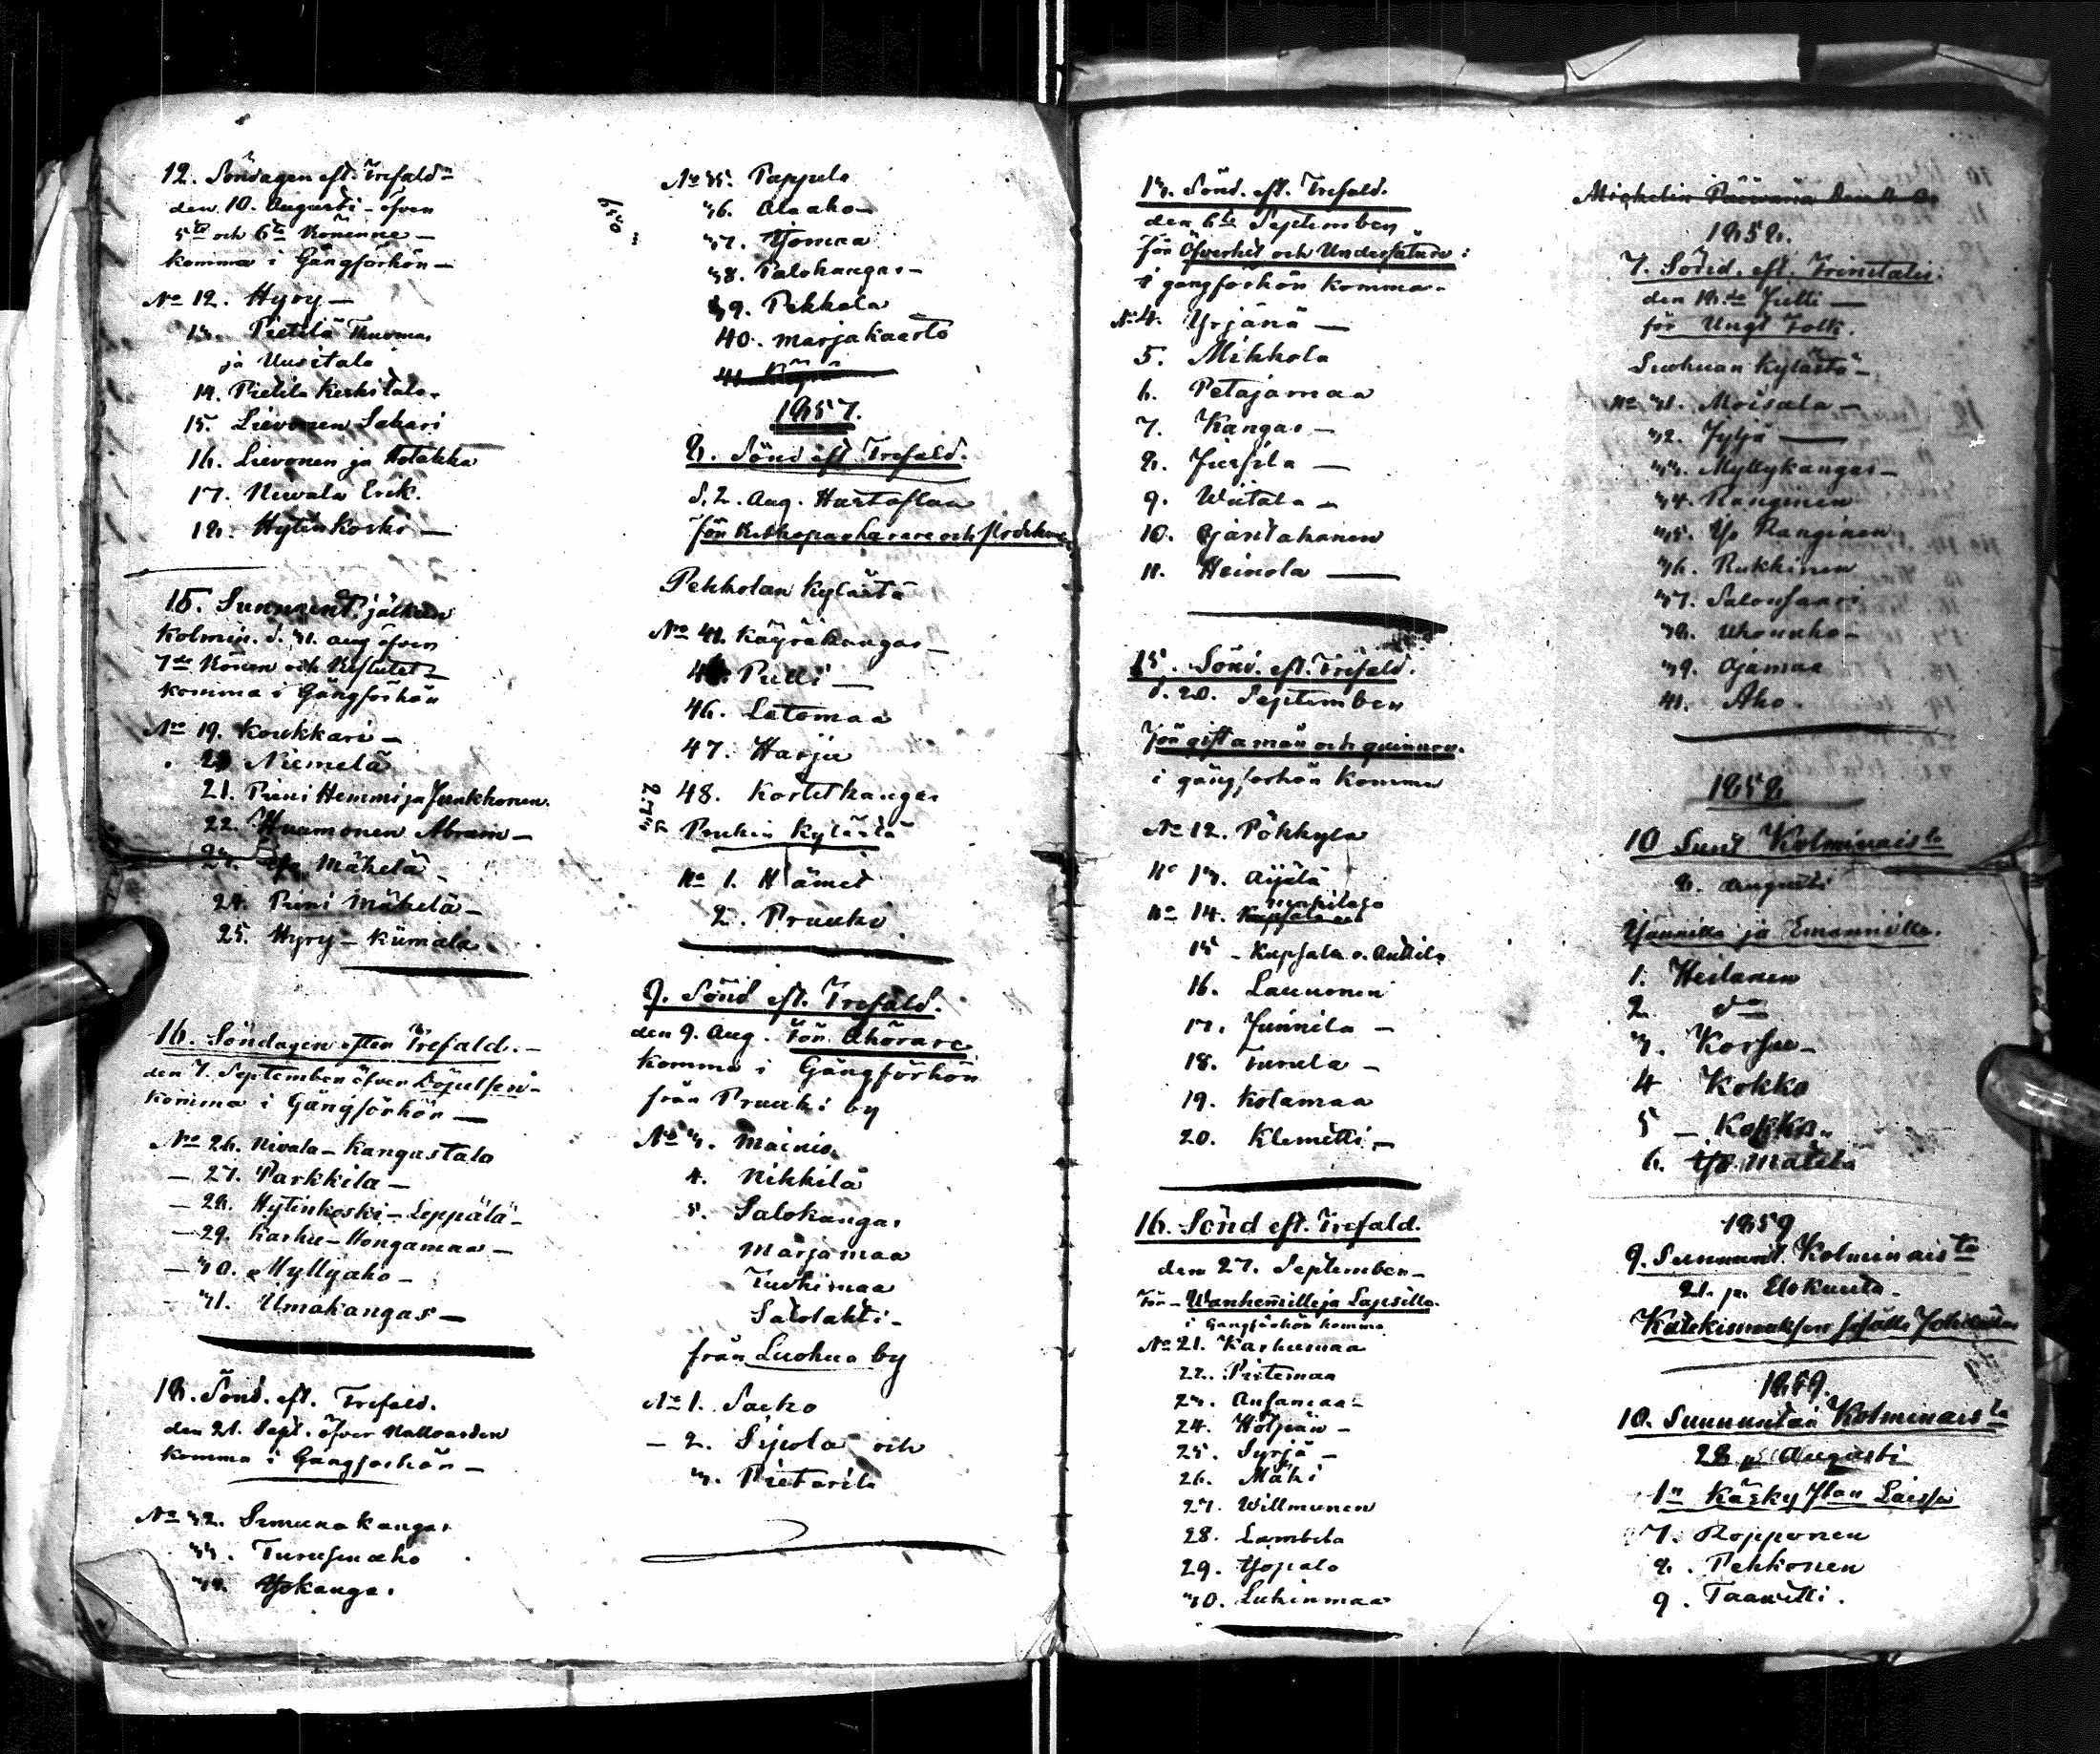 12. Söndagen eft. Trefald-
den 10. Augusti öfver
5te och 6te Bönerne -
komma i Gångförhör -
No 12. Hyry -
13. Pietilä Thuomas
ja Uusitalo
14. Pietilä Keskitalo.
15. Lievonen Sakari
16. Lievonen ja Kotakka
17. Niwala Erik.
18. Hytinkoski -
15. Sunnunt. jälken
Kolmin. d. 31. aug öfver
7de Bönen och Beslutet
komma i Gångförhör
No 19. Koukkari -
20 Niemelä
21. Pieni Hemmi ja Junkkonen.
22. Huamonen Abram -
23. Yli Mäkelä -
24. Pieni Mäkelä -
25. Hyry - Kiimala
16. Söndagen efter Trefald. -
den 7. September öfver Döpelsen -
komma i Gångförhör -
No 26. Nivala - Kangastalo
- 27. Parkkila -
- 28. Hytinkoski - Leppälä -
- 29. Karhu - Hongamaa -
- 30. Myllyaho -
- 31. Umakangas -
18. Sönd. eft. Trefald.
den 21. Sept. öfver Nattvarden
komma i Gångförhör -
No 32. Simuna kangas
33. Turusenaho
34. Yokangas
No 35. Pappila
36. Alaaho -
37. Yomaa
38. Palokangas -
39. Pekkala
40. Marjakaarto
41.
1857.
8. Sönd eft. Trefald.
d. 2. Aug. Hustaflan
för Biskopar Lärare och Predikan
Pekkolan Kylästä
No 41. Käyräkangas -
45. Pulli -
46. Latomaa
47. Harju
48. Kortetkangas
Pruukin Kylästä
No 1. Hämet
2. Pruuki
9. Sönd eft. Trefald.
den 9. Aug. För Åhörare
komma i Gångförhör
från Pruuki by
No 3. Mainio
4. Nikkilä
5. Salokangas
Marjamaa
Tuohimaa
Salolahti -
från Luohua by
No 1. Saeko
- 2. Sipola och
3. Pietarila
13. Sönd. eft. Trefald.
den 6te September
för Öfverhet och Undersåtare:
i gångförhör komma -
No 4. Yrjänä -
5. Mikkola
6. Petäjämaa
7. Kangas -
8. Jussila -
9. Wiitala -
10. Ojantakanen
11. Heinola -
15. Sönd. eft. Trefald.
d. 20. September
För gifta män och qvinnor.
i gångförhör komma
No 12. Pökkylä
No 13. Äijälä
No 14.
15 - Kupsala o. Anttila
16. Launonen
17. Junnila -
18. Turula -
19. Kotamaa
20. Klemetti -
16. Sönd eft. Trefald.
den 27. September -
För - Wanhemille ja Lapsille.
i Gångförhör komma
No 21. Karhumaa
22. Pistemaa
23. Ansamaa -
24. Höljiän -
25. Syrjä -
26. Mäki
27. Willmunen
28. Lambela
29. Yöpalo
30. Luhinmaa
1858.
7. Sönd. eft. Trinitatis.
den 18.de Julli -
för Ungt Folk.
Luohuan Kylästä -
No 31. Moisala -
32. Jyljä -
33. Myllykangas -
34. Ranginen
35. Yli Ranginen
36. Rukkinen
37. Salonsaari
38. Uhonaho -
39. Ojamaa
41. Aho.
1858
10 Sunt Kolminaista
8. Augusti
Isännille ja Emännille.
1. Heitanen
2. do
3. Korsu -
4 Kokko
5 - Kokko
6. Yli Mattila
1859
9. Sunnunt. Kolminaista
21. p. Elokuuta -
1859.
10. Sunnuntai Kolminaista
28 p Augusti
1n Käsky Jlan Laissa
7. Ropponen
8. Pekkonen
9. Taawetti.